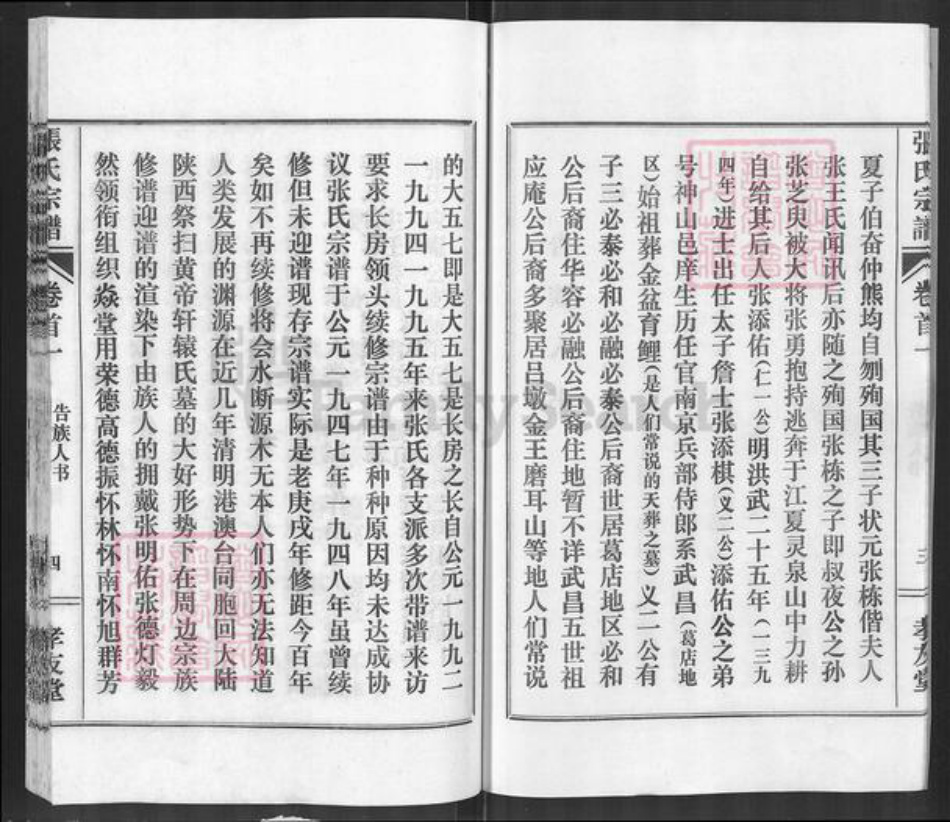 張氏宗譜
卷首一
三
孝友堂
夏子伯奋仲熊均自刎殉国其三子状元张栋偕夫人
张王氏闻讯后亦随之殉国张栋之子即叔夜公之孙
张芝㬰被大将张勇抱持逃奔于江夏灵泉山中力耕
自给其后人张添佑(仁一公)明洪武二十五年(一三九
四年)进士出任太子詹士张添棋(义二公)添佑公之弟
号神山邑庠生历任官南京兵部侍郎系武昌(葛店地
区)始祖葬金盆育鲤(是人们常说的天葬之墓)义二公有
子三必泰必和必融必泰公后裔世居葛店地区必和
公后裔住华容必融公后裔住地暂不详武昌五世祖
应庵公后裔多聚居吕墩金王磨耳山等地人们常说
的大五七即是大五七是长房之长自公元一九九二
一九九四一九九五年来张氏各支派多次带谱来访
要求长房领头续修宗谱由于种种原因均未达成协
议张氏宗谱于公元一九四七年一九四八年虽曾续
修但未迎谱现存宗谱实际是老庚戌年修距今百年
矣如不再续修将会水断源木无本人们亦无法知道
人类发展的渊源在近几年清明港澳台同胞回大陆
陕西祭扫黄帝轩辕氏墓的大好形势下在周边宗族
修谱迎谱的渲染下由族人的拥戴张明佑张德灯毅
然领衔组织焱堂用荣德高德振怀林怀南怀旭群芳
張氏宗譜
卷首一
告族人书
四
孝友堂
FamilySearch